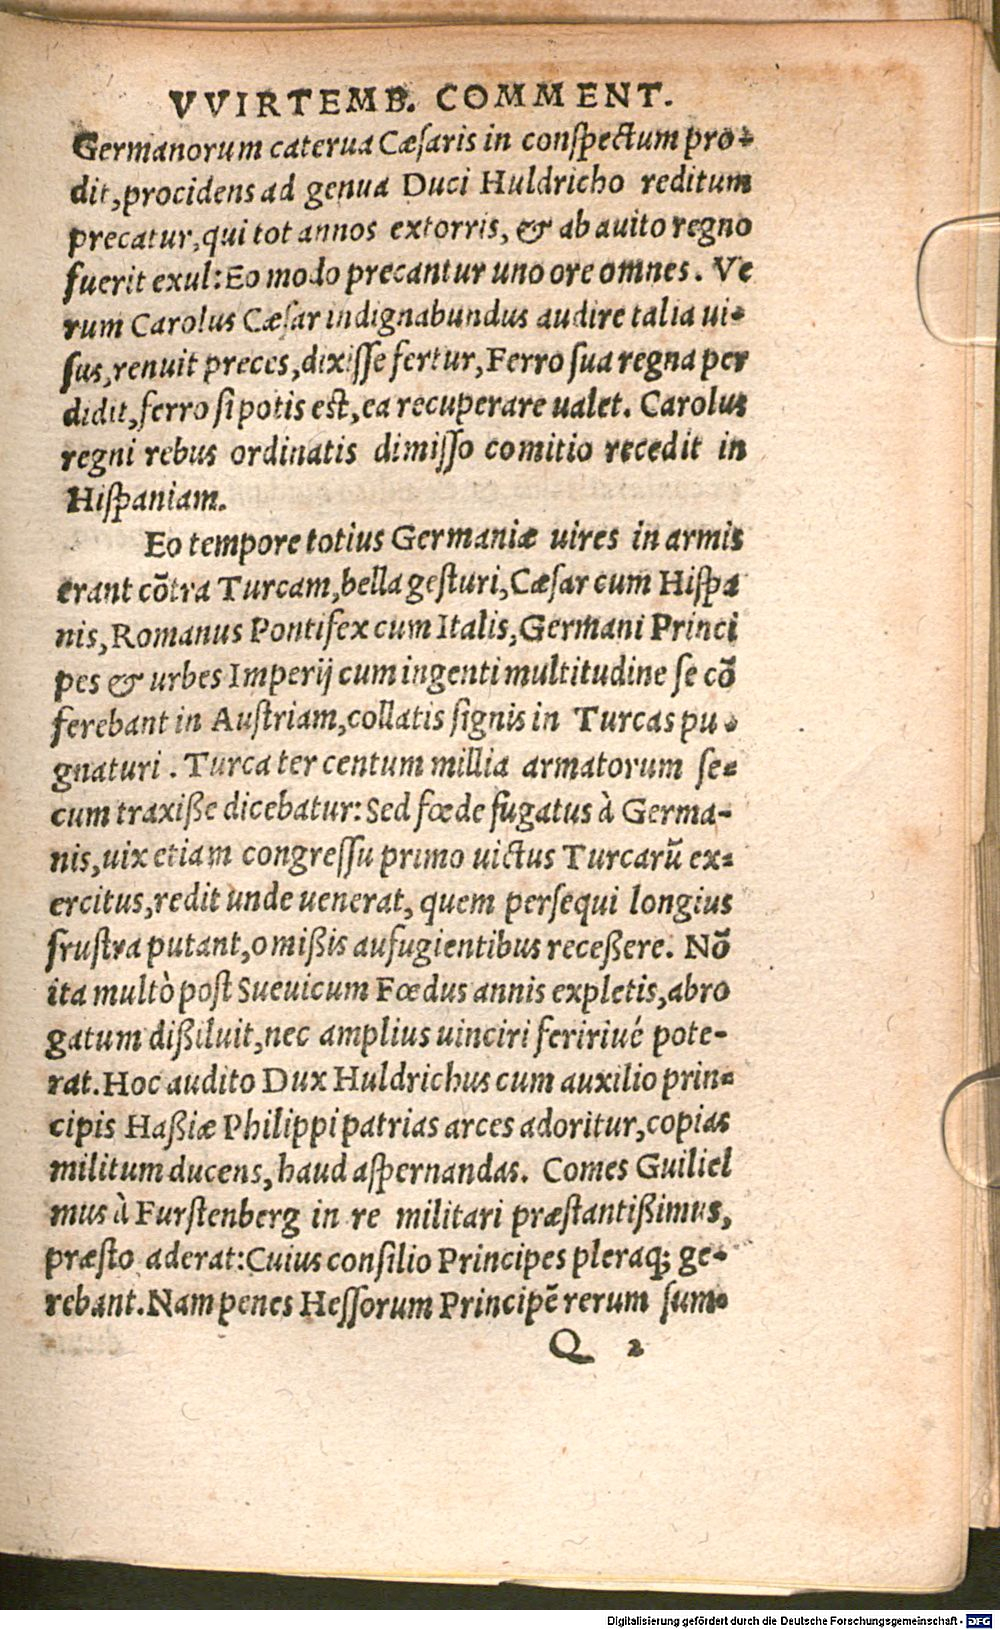 VVIRTEMB. COMMENT.
Germanorum caterua Cæsaris in conspectum pro-
dit, procidens ad genua Duci Huldricho reditum
precatur, qui tot annos extorris, & ab auito regno
fuerit exul: Eo modo precantur uno ore omnes. Ve
rum Carolus Cæsar indignabundus audire talia ui-
sus, renuit preces, dixisse fertur, Ferro sua regna per
didit, ferro si potis est, ea recuperare ualet. Carolus
regni rebus ordinatis dimisso comitio recedit in
Hispaniam.
Eo tempore totius Germaniæ uires in armis
erant cõtra Turcam, bella gesturi, Cæsar cum Hispa
nis, Romanus Pontifex cum Italis, Germani Princi
pes & urbes Imperij cum ingenti multitudine se cõ
ferebant in Austriam, collatis signis in Turcas pu-
gnaturi. Turca ter centum millia armatorum se-
cum traxiße dicebatur: Sed fœde fugatus à Germa-
nis, uix etiam congressu primo uictus Turcarũ ex-
ercitus, redit unde uenerat, quem persequi longius
frustra putant, omißis aufugientibus receßere. Nõ
ita multò post Sueuicum Fœdus annis expletis, abro
gatum dißiluit, nec amplius uinciri feririué pote-
rat. Hoc audito Dux Huldrichus cum auxilio prin-
cipis Haßiæ Philippi patrias arces adoritur, copias
militum ducens, haud aspernandas. Comes Guiliel
mus à Furstenberg in re militari præstantißimus,
præsto aderat: Cuius consilio Principes pleraq; ge-
rebant. Nam penes Hessorum Principẽ rerum sum-
Q 2
Digitalisierung gefördert durch die Deutsche Forschungsgemeinschaft - DFG